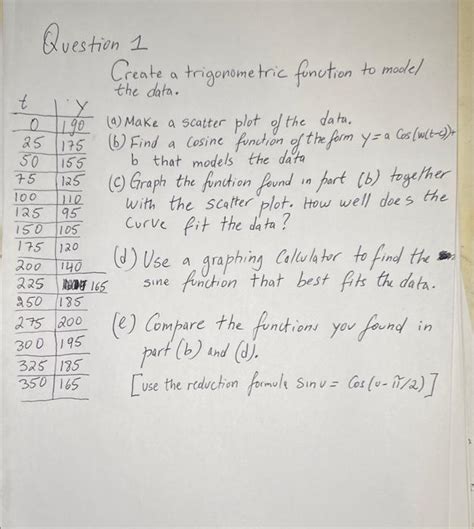 Question 1
Create a trigonometric function to model
the data.
t y
0 190
25 175
50 155
75 125
100 110
125 95
150 105
175 120
200 140
225 165
250 185
275 200
300 195
325 185
350 165
(a) Make a scatter plot of the data.
(b) Find a cosine function of the form y = a Cos(w(t-c))+
b that models the data
(c) Graph the function found in part (b) together
with the scatter plot. How well does the
curve fit the data?
(d) Use a graphing Calculator to find the
sine function that best fits the data.
(e) Compare the functions you found in
part (b) and (d).
[use the reduction formula Sin u = Cos(u - π/2)]